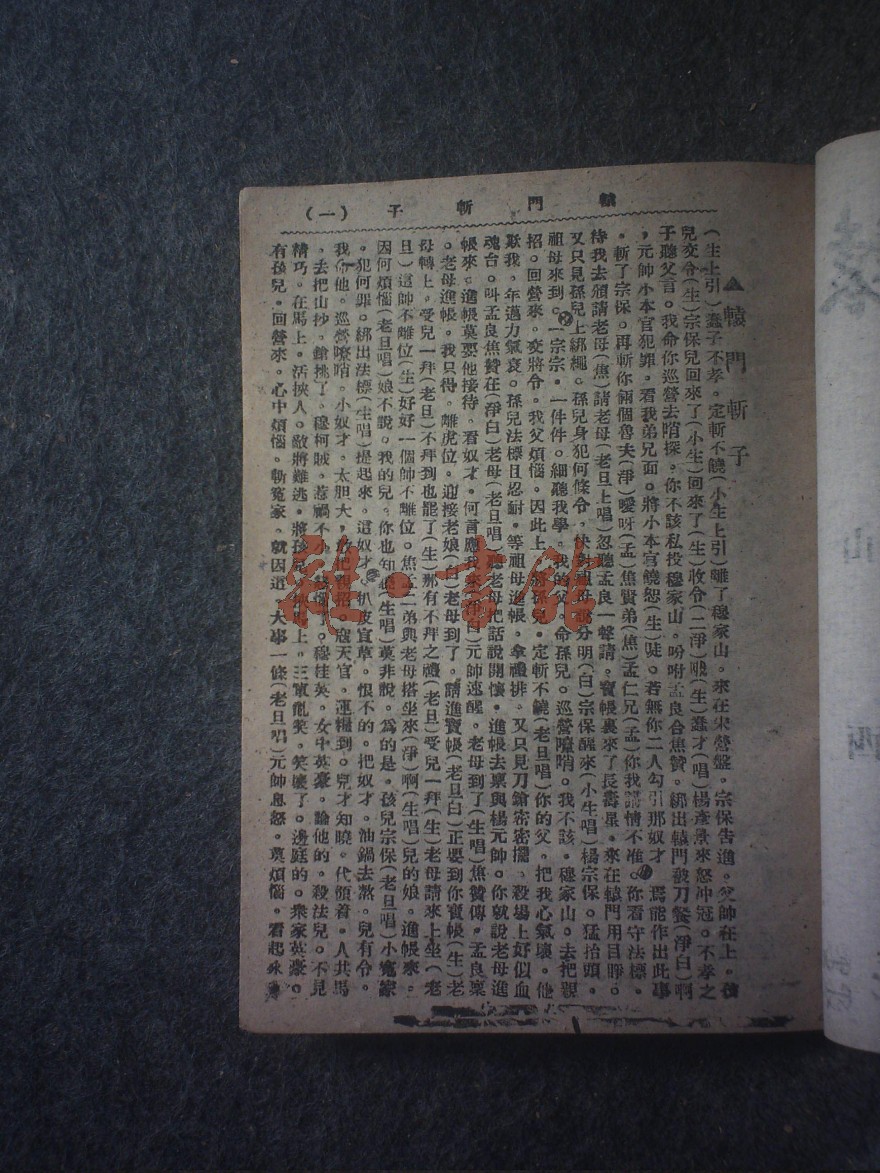 轅門斬子 (一)
▲轅門斬子
(生上引)蠢子不孝。定斬不饒(小生上引)離了穆家山。來在宋營盤。宗保告進。父帥在上。孩
兒交令(生)宗保兒回來了(小生)回來了(生)收令(二淨)(生)蠢才(唱)楊彥景來怒冲冠。不孝之
子聽父言。我命你巡營去哨探。你不該私投穆家山。吩咐孟良合焦贊。綁出轅門殺刀餐(淨白)啊
。元帥小本官犯罪。看我弟兄面。將小本官饒恕(生)唗。若無你二人勾引那奴才。焉能作出此事
。斬了宗保。再斬你倆個魯夫(淨)噯呀(孟)焦賢弟(焦)孟仁兄(孟)你我講情不准。你看守法標。
待我去頒請老母(焦)請老母(老旦上唱)忽聽孟良一聲請。寶帳裏來了長壽星。來在轅門用目睜。
又只見孫兒上綁繩。孫兒身犯何條令。快對祖母說分明(白)宗保醒來(小生唱)楊宗保。猛抬頭。
祖母來到。一宗宗。一件件。細聽我學。我的父。命孫兒。巡營瞭哨。我不該。穆家山。去把親
招。回營來。交將令。我父煩惱。因此上。將孫兒。定斬不饒(老旦唱)你的父。把我心氣壞。他
欺我。年邁力氣衰。孫兒法標且忍耐。等祖母進帳。拿禮排。又只見刀鎗密密擺。殺場上好似血
魂台。叫孟良焦贊在(淨白)老母(老旦唱)聽老母把話說開懷。進帳去禀與楊元帥。你就說老母進
帳來。進帳莫要他接待。看奴才。何言應我來(淨白)元帥速醒。老母到了(生唱)焦贊傳。孟良禀
。老母進帳。我只得。離虎位。迎接老娘(白)老母到了。請進寶帳(老旦白)正要到你寶帳(生)老
母轉上。受兒一拜(老旦)不拜到也罷了(生)那有不拜之禮(老旦)受兒一拜(生)老母請來上坐(老
旦)這帥不離位(生)好好一個帥不離位。焦孟二弟與老母搭坐來(淨)啊(生唱)兒的娘。進帳來。
因何煩惱(老旦唱)娘不說。我的兒。你也知曉(生唱)莫非說。為的是。孩兒宗保(老旦唱)小寃家
。犯何罪。綁出法標(生唱)提起來。這奴才。扒皮宣草。恨不的。把奴才。油鍋去熬。兒有令。
我命他。巡營瞭哨。小奴才。太胆大。去把親招。寇天官。運糧到。兒才知曉。代領着。人共馬
。去把山抄。鎗挑了。穆柯賊。惹禍不小。穆桂英。女中英豪。論他的。殺法兒。不見
精巧。在馬上。活挾人。敵將難逃。將孩兒。三軍亂笑。笑壞了。邊庭的。衆家英豪。
有孩兒。回營來。心中煩惱。斬寃家。就因這。大事一條(老旦唱)元帥息怒。莫煩惱。看起來
雅·書館